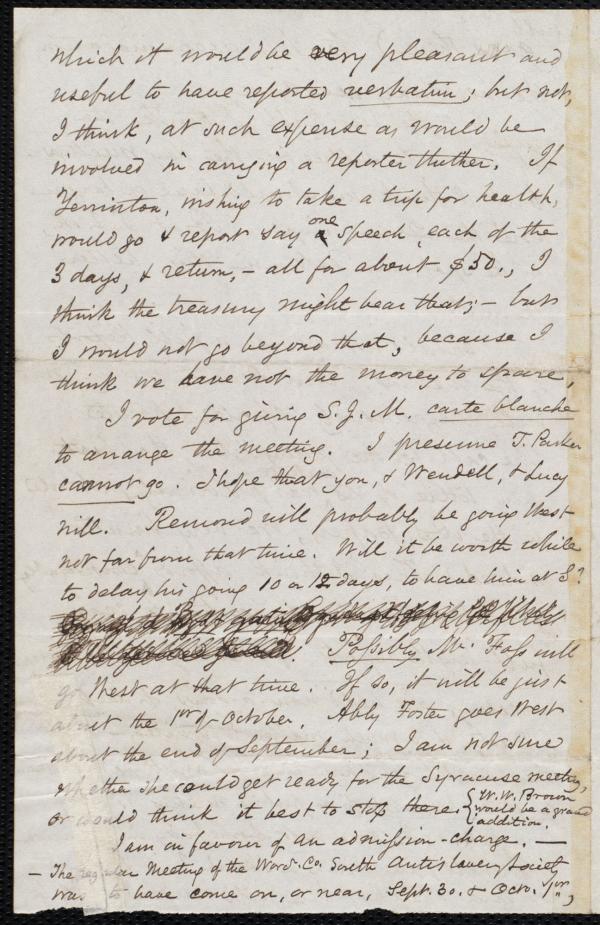 which it would be very pleasant and
useful to have reported verbatim; but not,
I think, at such expense as would be
involved in carrying a reporter thither. If
Yerrinton, wishing to take a trip for health,
would go & report say one speech, each of the
3 days, & return, – all for about $50., I
think the treasury might bear that; – but
I would not go beyond that, because I
think we have not the money to spare.
I vote for giving S. J. M. carte blanche
to arrange the meeting. I presume T. Parker
cannot go. I hope that you, & Wendell, & Lucy
will. Remond will probably be going West
not far from that time. Will it be worth while
to delay his going 10 or 12 days, to have him at S?
Possibly Mr. Foss will
go West at that time. If so, it will be just
about the 1st of October. Abby Foster goes West
about the end of September; I am not sure
whether she could get ready for the Syracuse meeting,
or would think it best to stop there. {W. W. Brown
would be a grand
addition.
I am in favour of an admission-charge. —
– The regular Meeting of the Worc. Co. South Antislavery Society
was to have come on, or near, Sept. 30. & Octo. 1st,